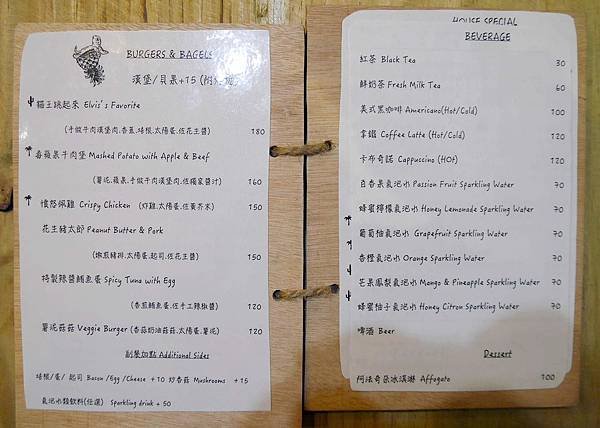 BURGERS & BAGELS
漢堡/貝果+15
貓王跳起來 Elvis's Favorite
(手做牛肉漢堡肉.香蕉.培根.太陽蛋.佐花生醬) 180
春蘋果牛肉堡 Mashed Potato with Apple & Beef
(薯泥.蘋果.手做牛肉漢堡肉.佐獨家醬汁) 160
懷舊佩雞 Crispy Chicken (炸雞.太陽蛋.佐黃芥末) 150
花生豬太郎 Peanut Butter & Pork
(嫩煎豬排.太陽蛋.起司.佐花生醬) 150
特製辣醬鮪魚蛋 Spicy Tuna with Egg
(香煎鮪魚蛋.佐手工辣椒醬) 120
薯泥菇菇 Veggie Burger (香菇奶油菇菇.太陽蛋.薯泥) 120
副餐加點 Additional Sides
培根/蛋/ 起司 Bacon /Egg /Cheese +10 炒香菇 Mushrooms +15
氣泡水類飲料(任選) Sparkling drink + 50
HOUSE SPECIAL
BEVERAGE
紅茶 Black Tea 30
鮮奶茶 Fresh Milk Tea 60
美式黑咖啡 Americano(Hot/Cold) 100
拿鐵 Coffee Latte (Hot/Cold) 120
卡布奇諾 Cappuccino (HOt) 120
百香果氣泡水 Passion Fruit Sparkling Water 70
蜂蜜檸檬氣泡水 Honey Lemonade Sparkling Water 70
葡萄柚氣泡水 Grapefruit Sparkling Water 70
香橙氣泡水 Orange Sparkling Water 70
芒果鳳梨氣泡水 Mango & Pineapple Sparkling Water 70
蜂蜜柚子氣泡水 Honey Citron Sparkling Water 70
啤酒 Beer
Dessert
阿法奇朵冰淇淋 Affogato 100